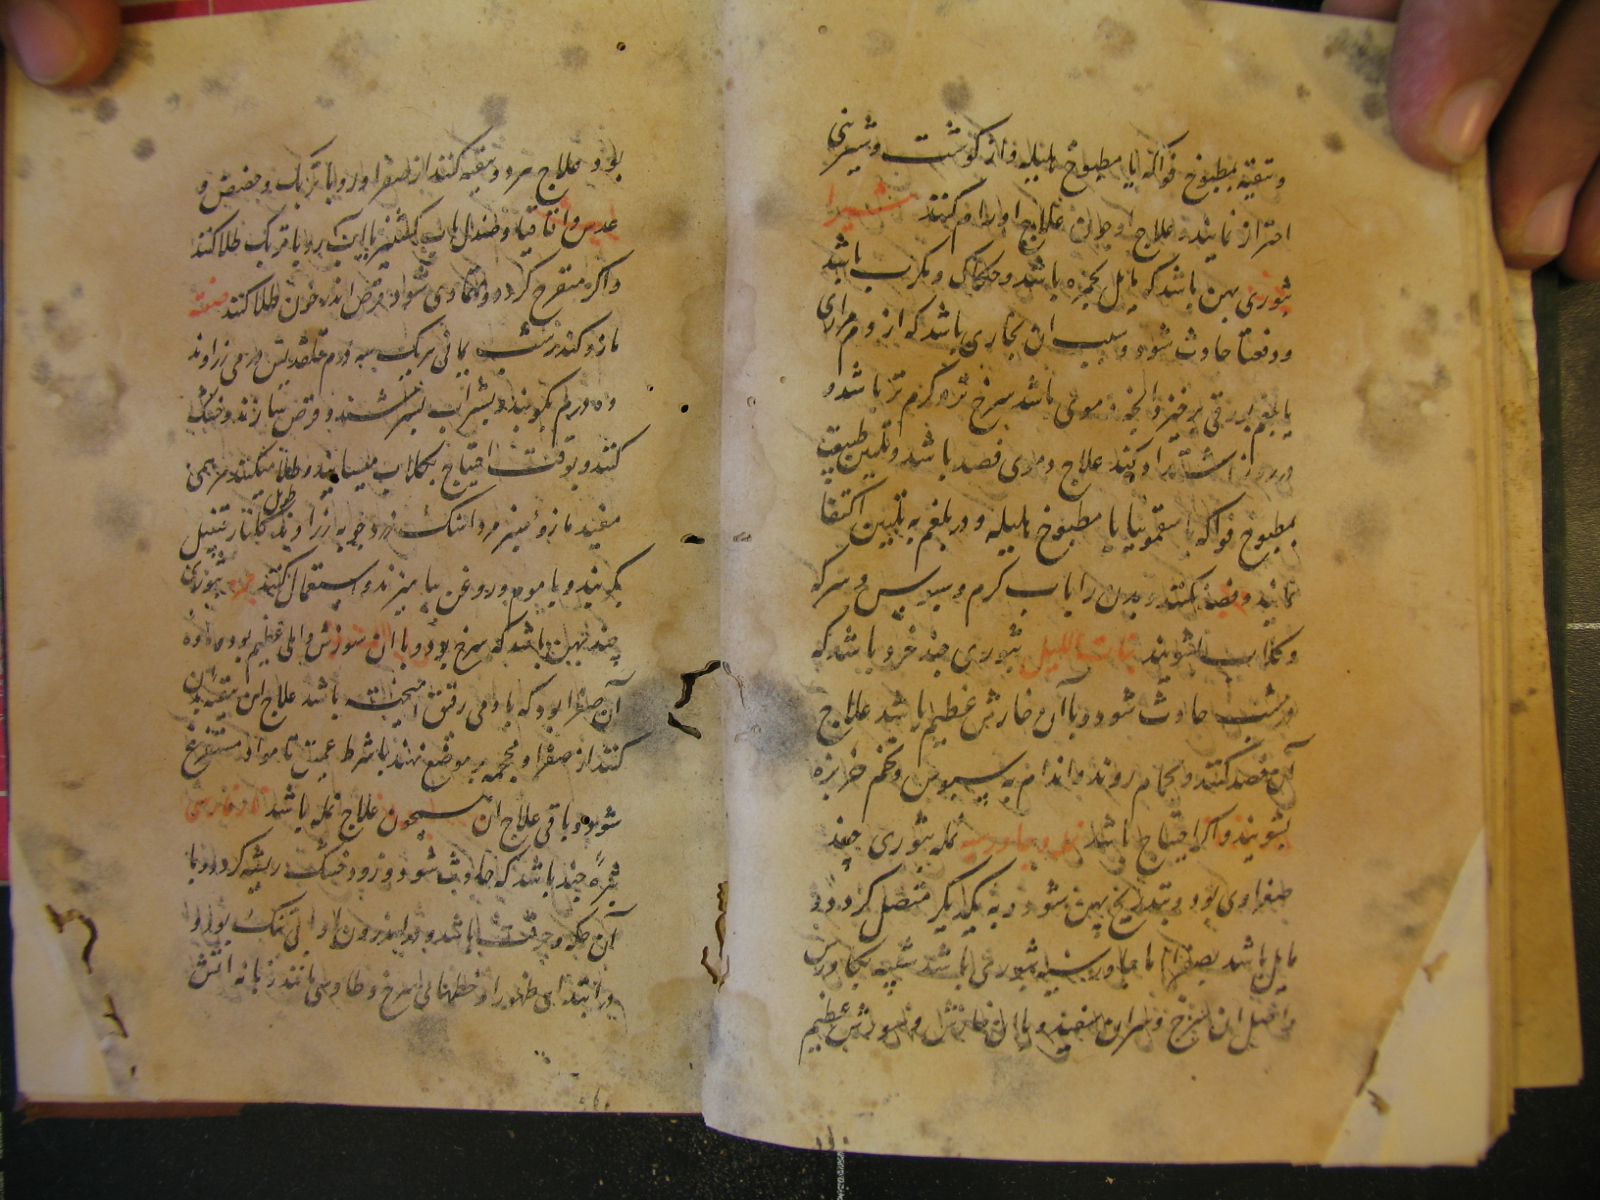 و تنقیه بمطبوخ فواکه یا مطبوخ هلیله و از گوشت و شیرینی
احتراز نمایند و علاج او چون علاج اورام کنند شرا
بثوری پهن باشد که مایل بحمره باشد و حکاک و مکرب باشد
و دفعتا حادث شود و سبب ان بخاری باشد که از دم مراری
یا بلغم بورقی برخیزد الخه دموی باشد سرخ تر و گرم تر باشد و
در روز اشتداد کند علاج دموی فصد باشد و تلیین طبیعت
بمطبوخ فواکه یا سقمونیا یا مطبوخ هلیله و در بلغم به تلیین اکتفا
نمایند و فصد نکنند و بدن را باب گرم و سبوس و سرکه
و گلاب بشویند بنات اللیل بثوری چند خرد باشد که
در شب حادث شود و با آن خارش عظیم باشد علاج
آن فصد کنند و بحمام روند و اندام به سبوس و تخم خربزه
بشویند و اگر احتیاج باشد نمله و جاورسیه نمله بثوری چند
صفراوی بود و بتدریج پهن شود و به یکدیگر متصل گردد و
مایل باشد بصفرا اما جاورسیه بثوری باشد شبیه بجاورس
اصل ان سرخ و سر ان سفید و با ان خارش و سوزش عظیم
بود علاج هر دو تنقیه کنند از صفرا و روبا تربک و حضض و
عدس و اقاقیا و صندل اب گشنیز با این هر دو با قریک طلا کنند
و اگر متقرح گردد و مداوی شود قرص اندرخون طلا کنند صفته
مازو کندر شب یمانی هر یک سه درم قلقدیس درمی زراوند
ده درم بکوبند و بشراب بسرشند و قرص سازند و خشک
کنند و بوقت احتیاج بگلاب میسایند و طلا میکنند مرهمی
مفید مازوی سبز مرداسنگ زردچوبه زراوند طویل گلنار قنبیل
بکوبند و با موم و روغن بیامیزند و استعمال کنند جمره بثوری
چند پهن باشد که سرخ بود و با ان سوزش و المی عظیم بود و ماده
آن صفرا بود که با دمی رقیق آمیخته باشد علاج این تنقیه بدن
کنند از صفرا و محجمه بر موضع نهند با شرط عمیق تا مواد مستفرغ
شود و باقی علاج ان همچون علاج نمله باشد نار فارسی
بثره چند باشد که حادث شود و زود خشک ریشه گردد و با
آن حکه و حرقت باشد و در اندرون او ابی تنک بود و
در ابتدای ظهور او خطهائی سرخ و طاوسی مانند زبانه اتش